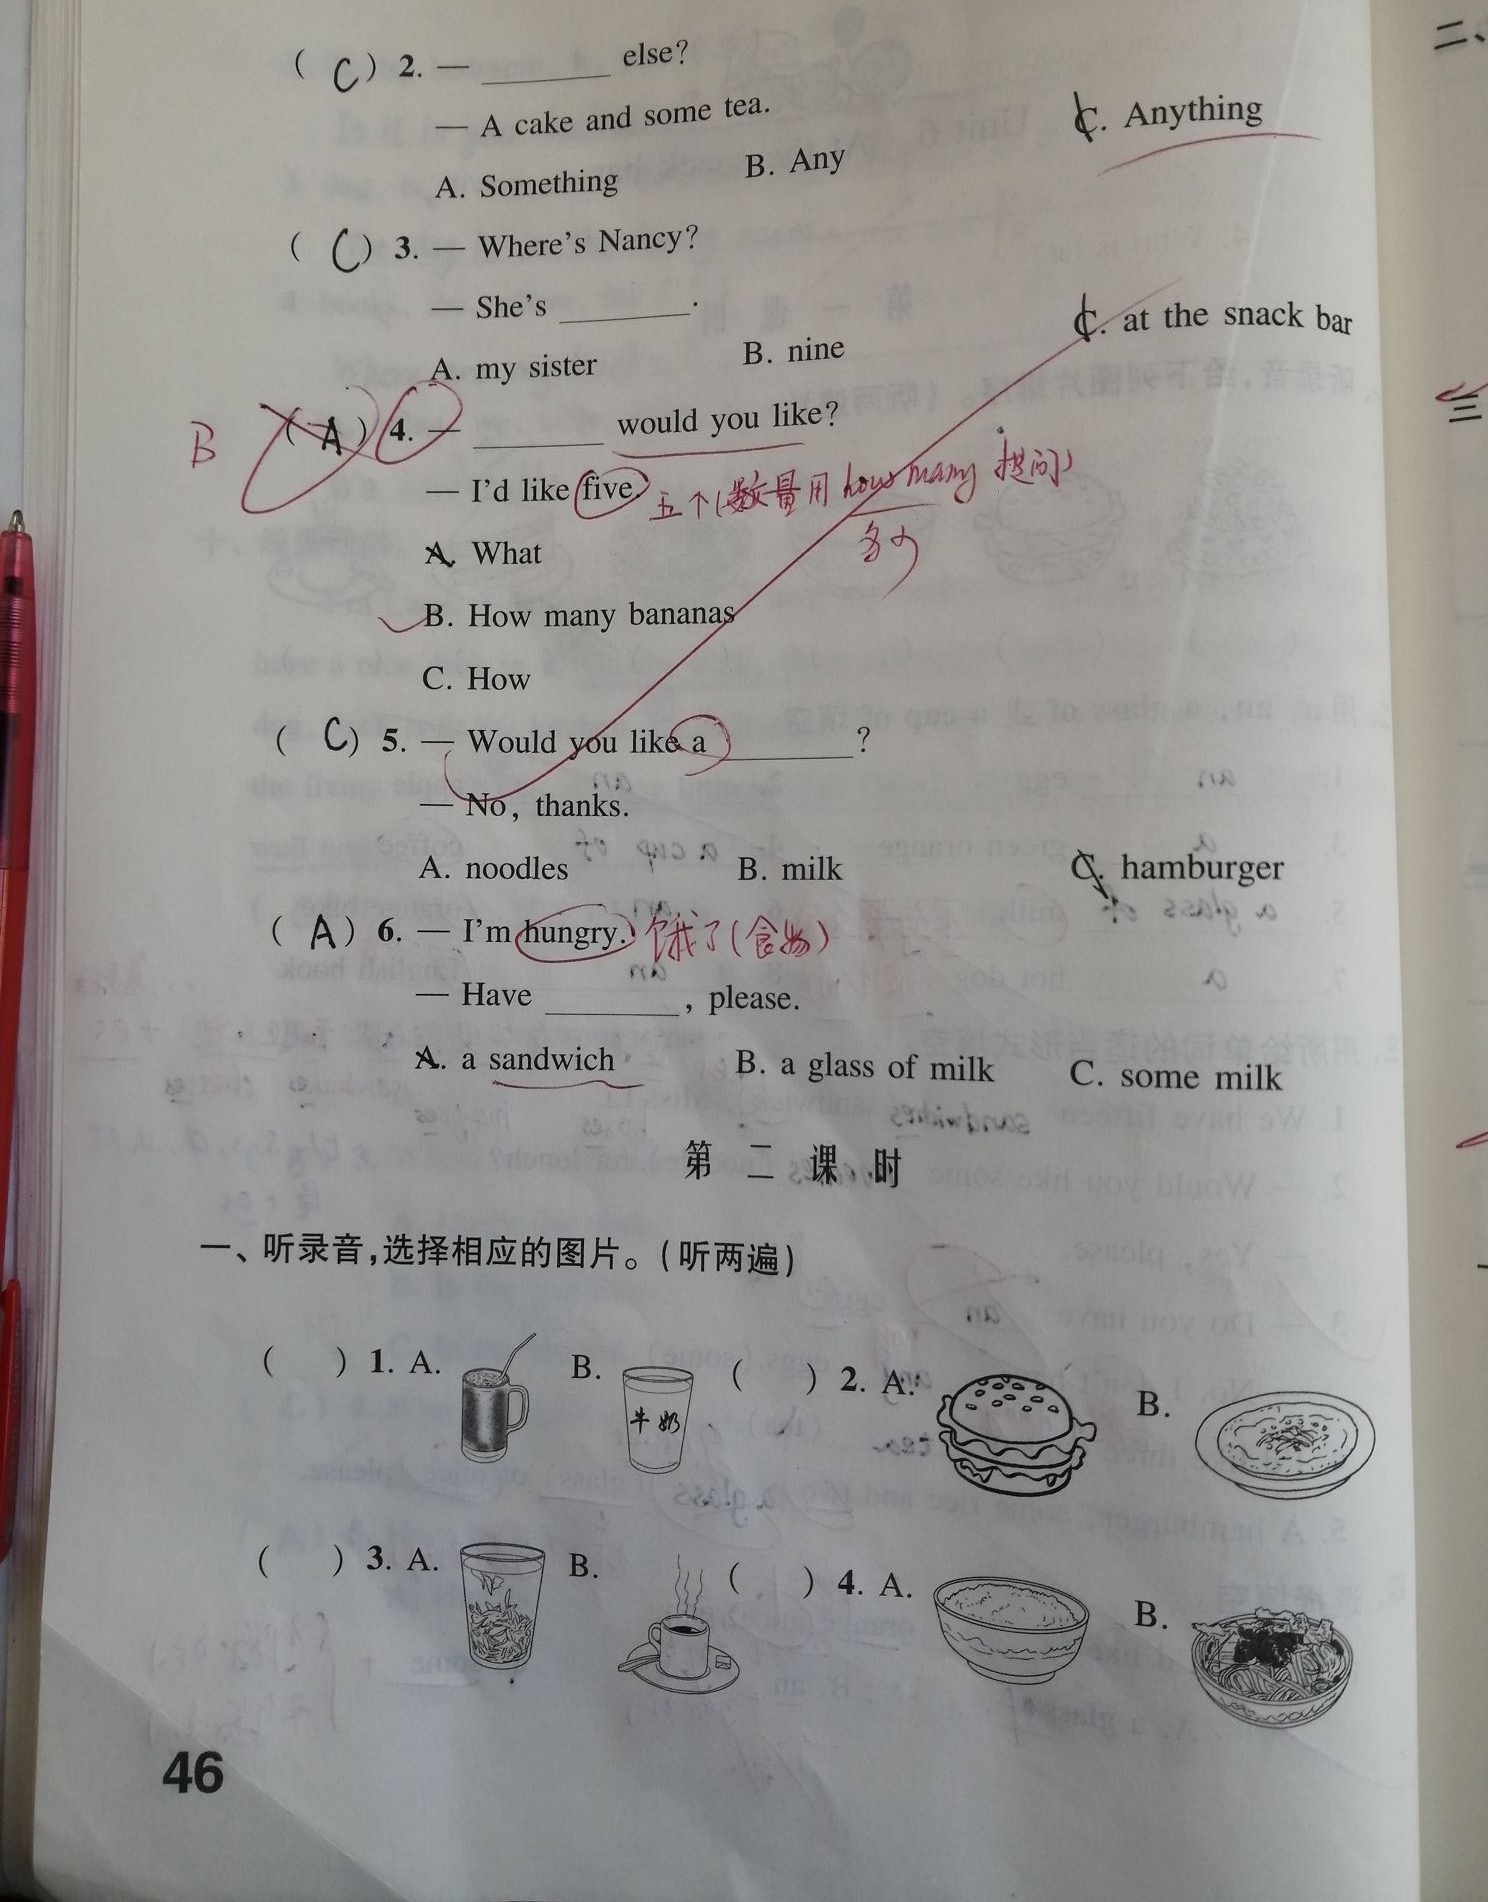 ( C ) 2. — ________ else?
— A cake and some tea.
A. Something B. Any C. Anything
( C ) 3. — Where's Nancy?
— She's ________.
A. my sister B. nine C. at the snack bar
B ( A ) 4. — ________ would you like?
— I'd like five. 五个(数量用 how many 提问)
多少
A. What
B. How many bananas
C. How
( C ) 5. — Would you like a ________?
— No, thanks.
A. noodles B. milk C. hamburger
( A ) 6. — I'm hungry. 饿了(食物)
— Have ________, please.
A. a sandwich B. a glass of milk C. some milk
第 二 课 时
一、听录音,选择相应的图片。(听两遍)
( ) 1. A. B. 牛奶 ( ) 2. A. B.
( ) 3. A. B. ( ) 4. A. B.
46
二、
三